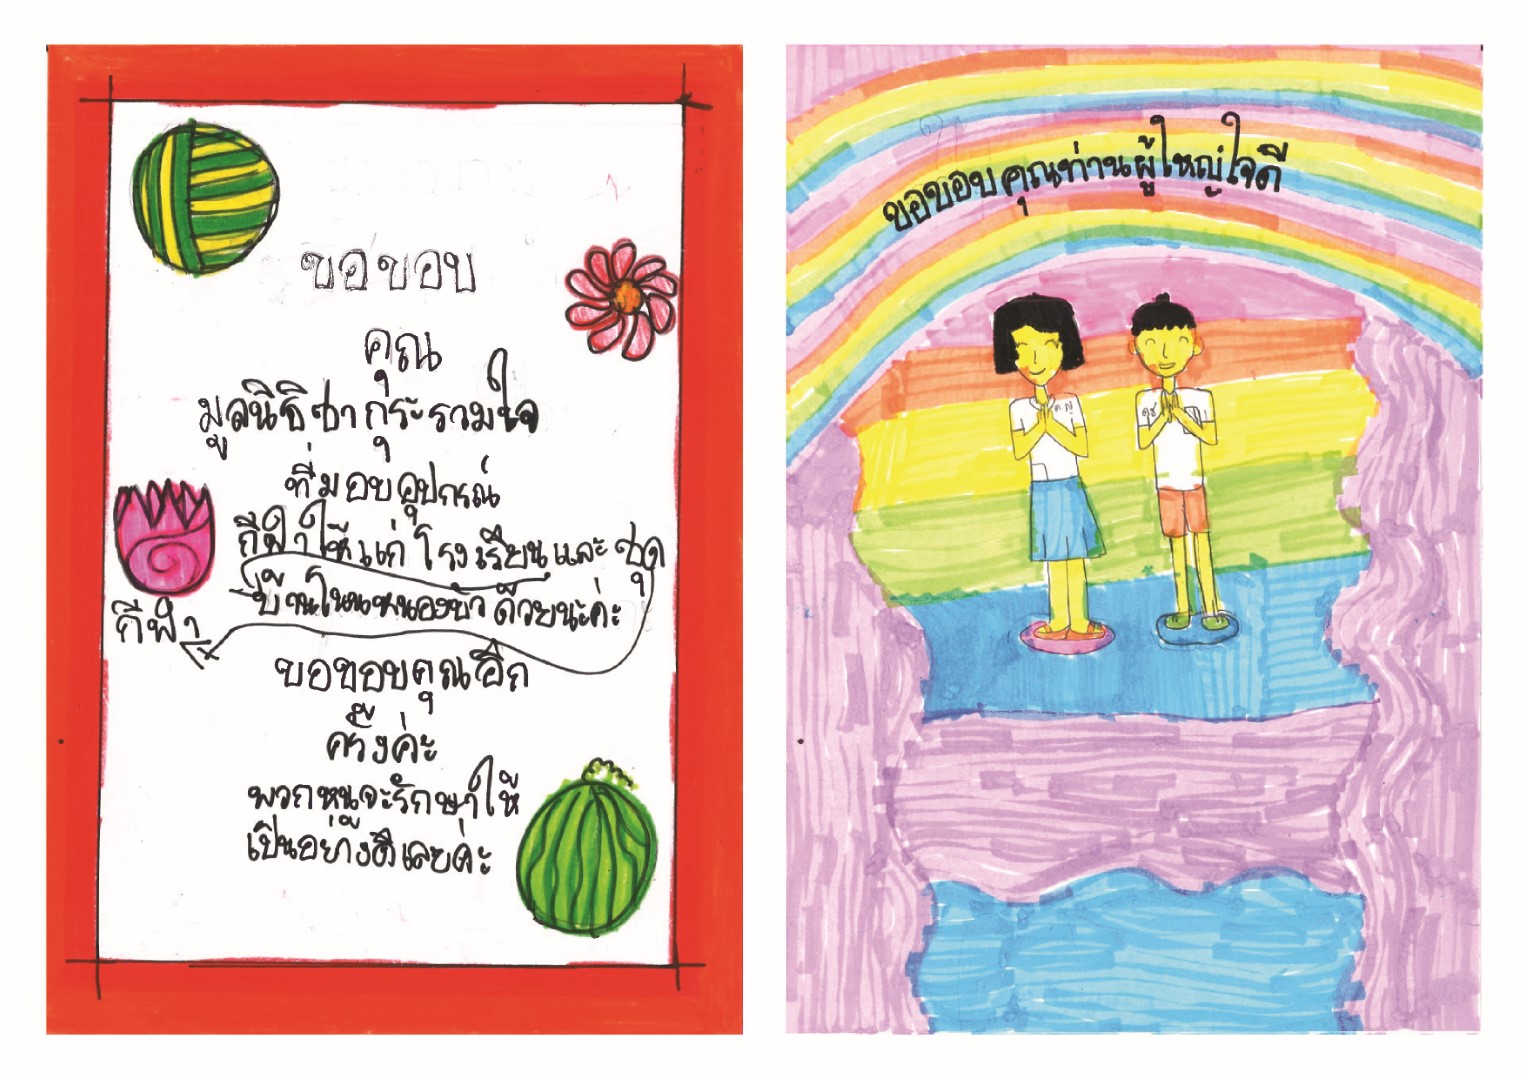 ขอขอบ
คุณ
มูลนิธิซากุระรวมใจ
ที่มอบอุปกรณ์
กีฬาให้แก่โรงเรียนและชุด
บ้านโนนหนองบัวด้วยนะค่ะ
กีฬา
ขอขอบคุณอีก
ครั้งค่ะ
พวกหนูจะรักษาให้
เป็นอย่างดีเลยค่ะ
ขอขอบคุณท่านผู้ใหญ่ใจดี